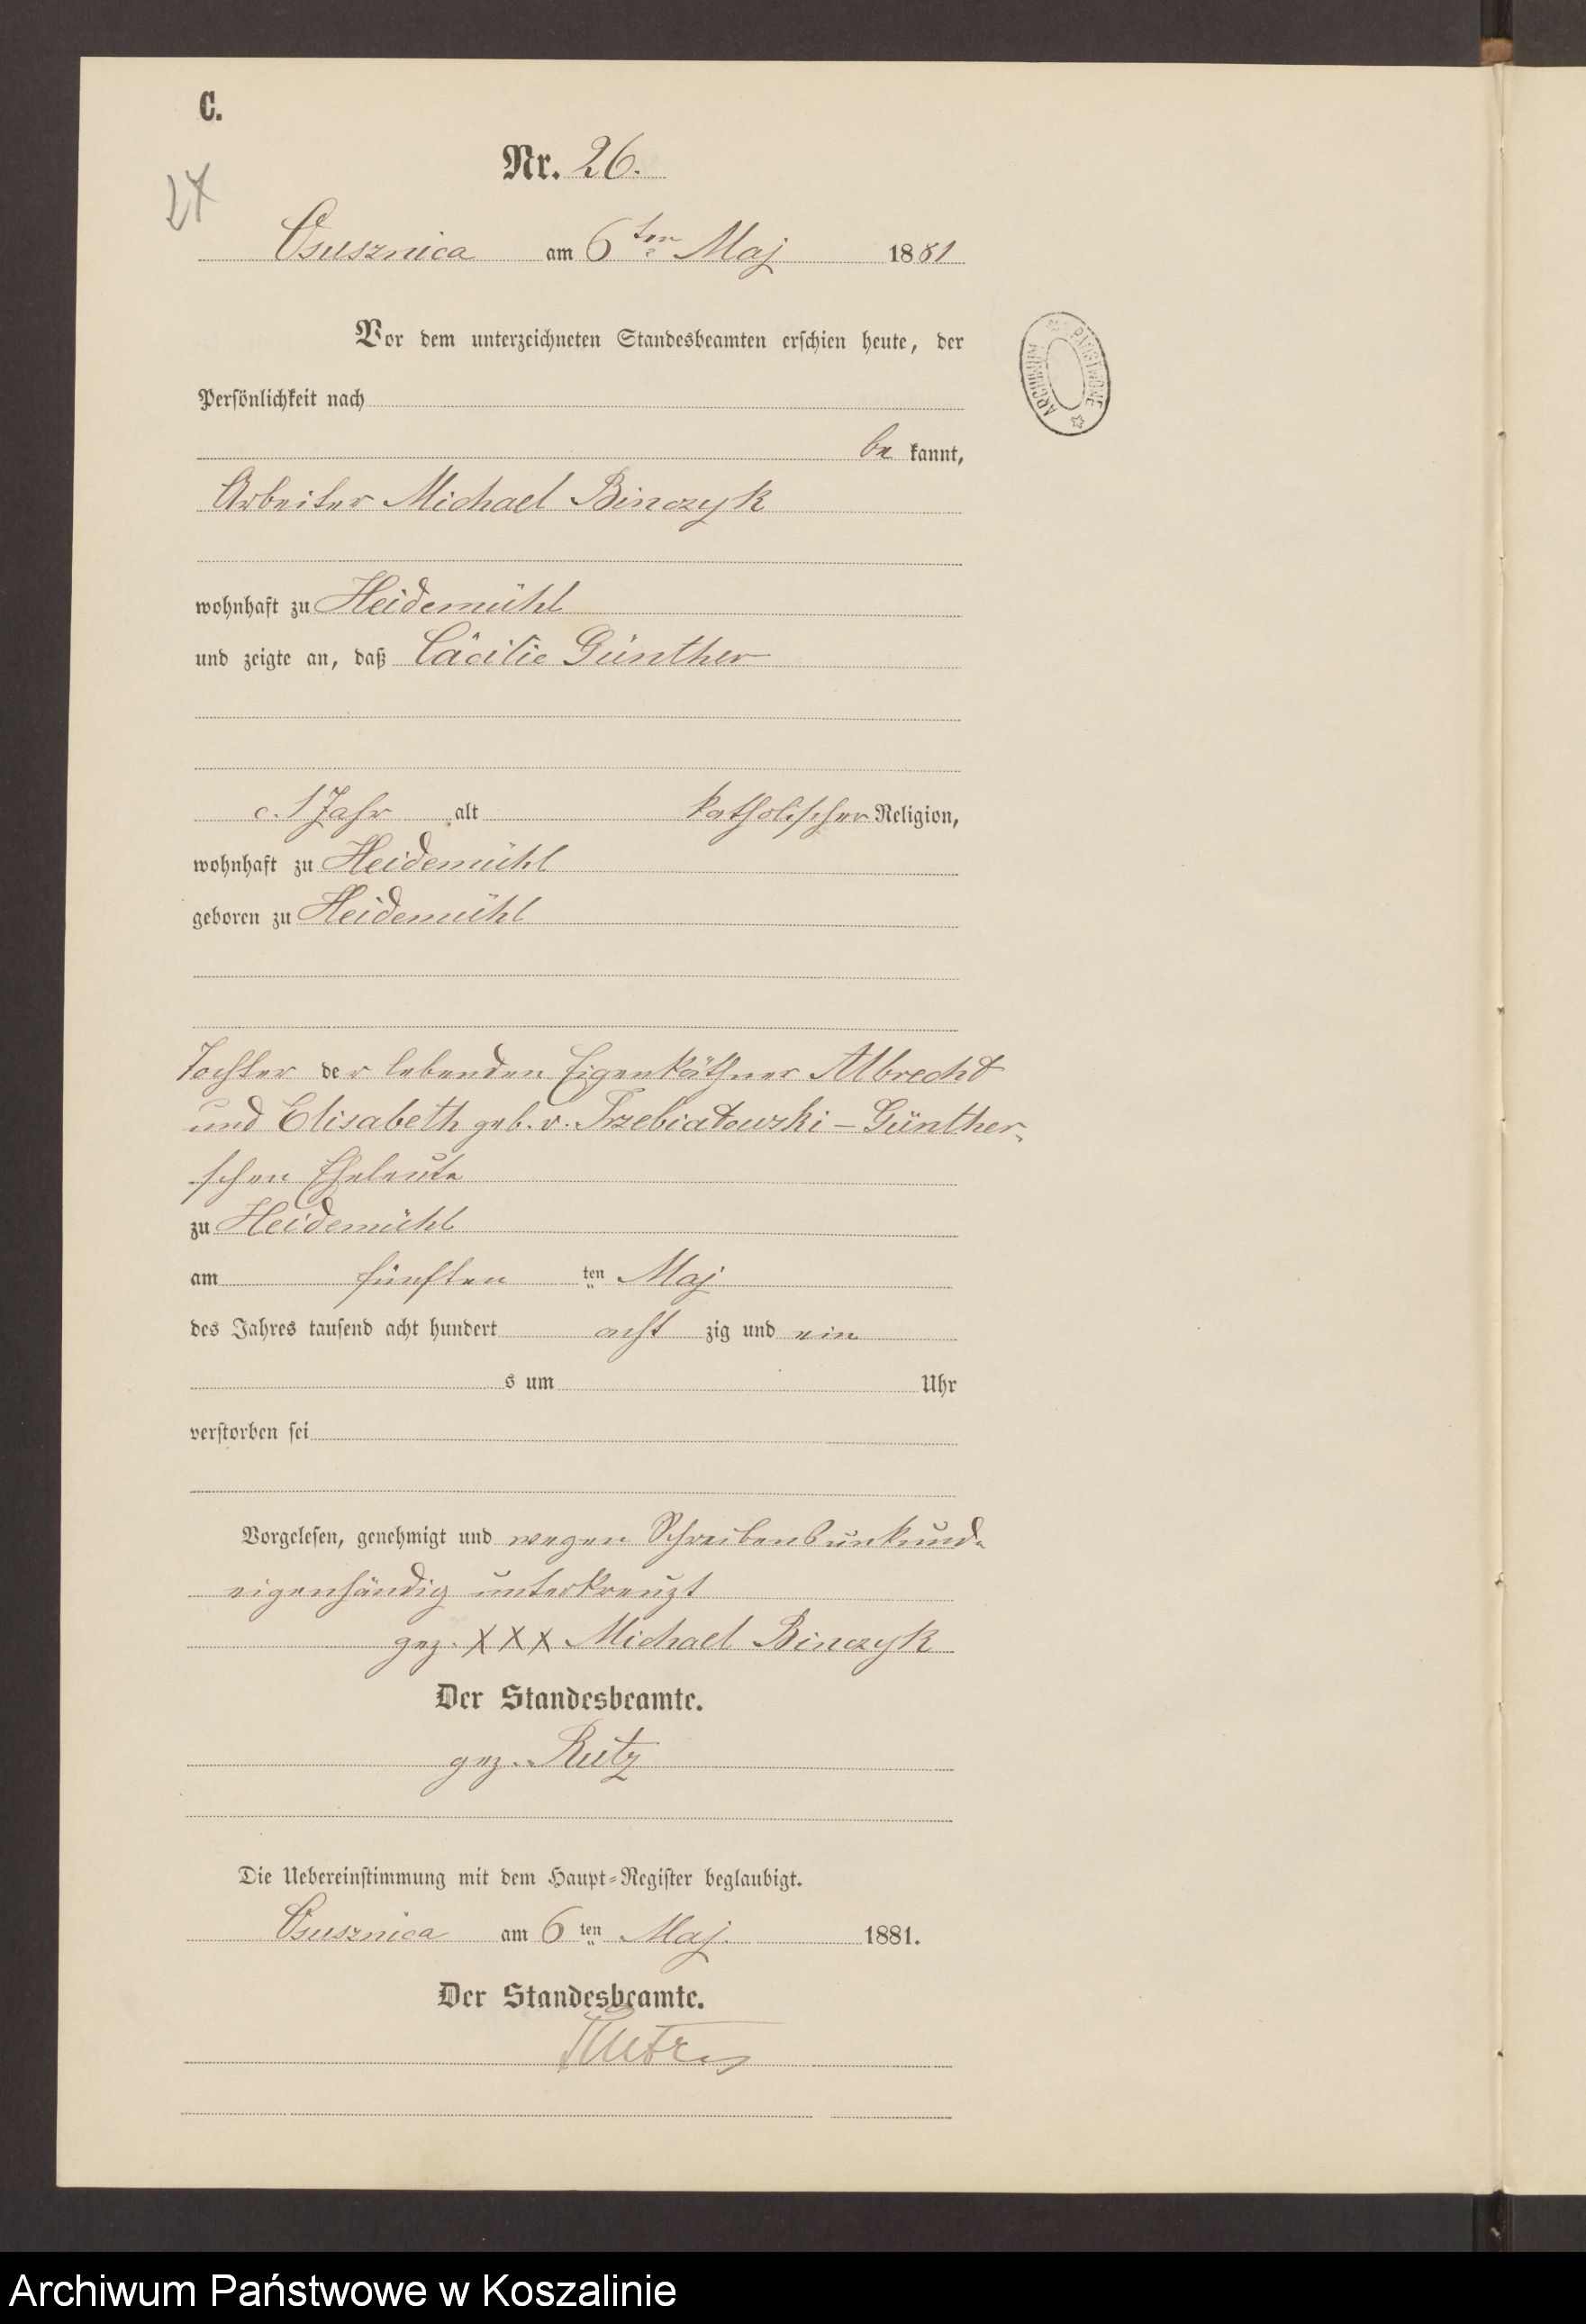 C.
Nr. 26.
24
Osusznica am 6ten Maj 1881
Vor dem unterzeichneten Standesbeamten erschien heute, der
Persönlichkeit nach
be kannt,
Arbeiter Michael Binczyk
wohnhaft zu Heidemühl
und zeigte an, daß Cäcilie Günther
c. 1 Jahr alt katholischer Religion,
wohnhaft zu Heidemühl
geboren zu Heidemühl
Tochter der lebenden Eigenkäthner Albrecht
und Elisabeth geb. v. Trzebiatowski – Günther-
schen Eheleute
zu Heidemühl
am fünften ten Maj
des Jahres tausend acht hundert acht zig und ein
s um Uhr
verstorben sei
Vorgelesen, genehmigt und wegen Schreibensunkund-
eigenhändig unterkreuzt
gez. XXX Michael Binczyk
Der Standesbeamte.
gez. Rutz
Die Uebereinstimmung mit dem Haupt-Register beglaubigt.
Osusznica am 6 ten Maj. 1881.
Der Standesbeamte.
ARCHIWUM PAŃSTWOWE
Archiwum Państwowe w Koszalinie